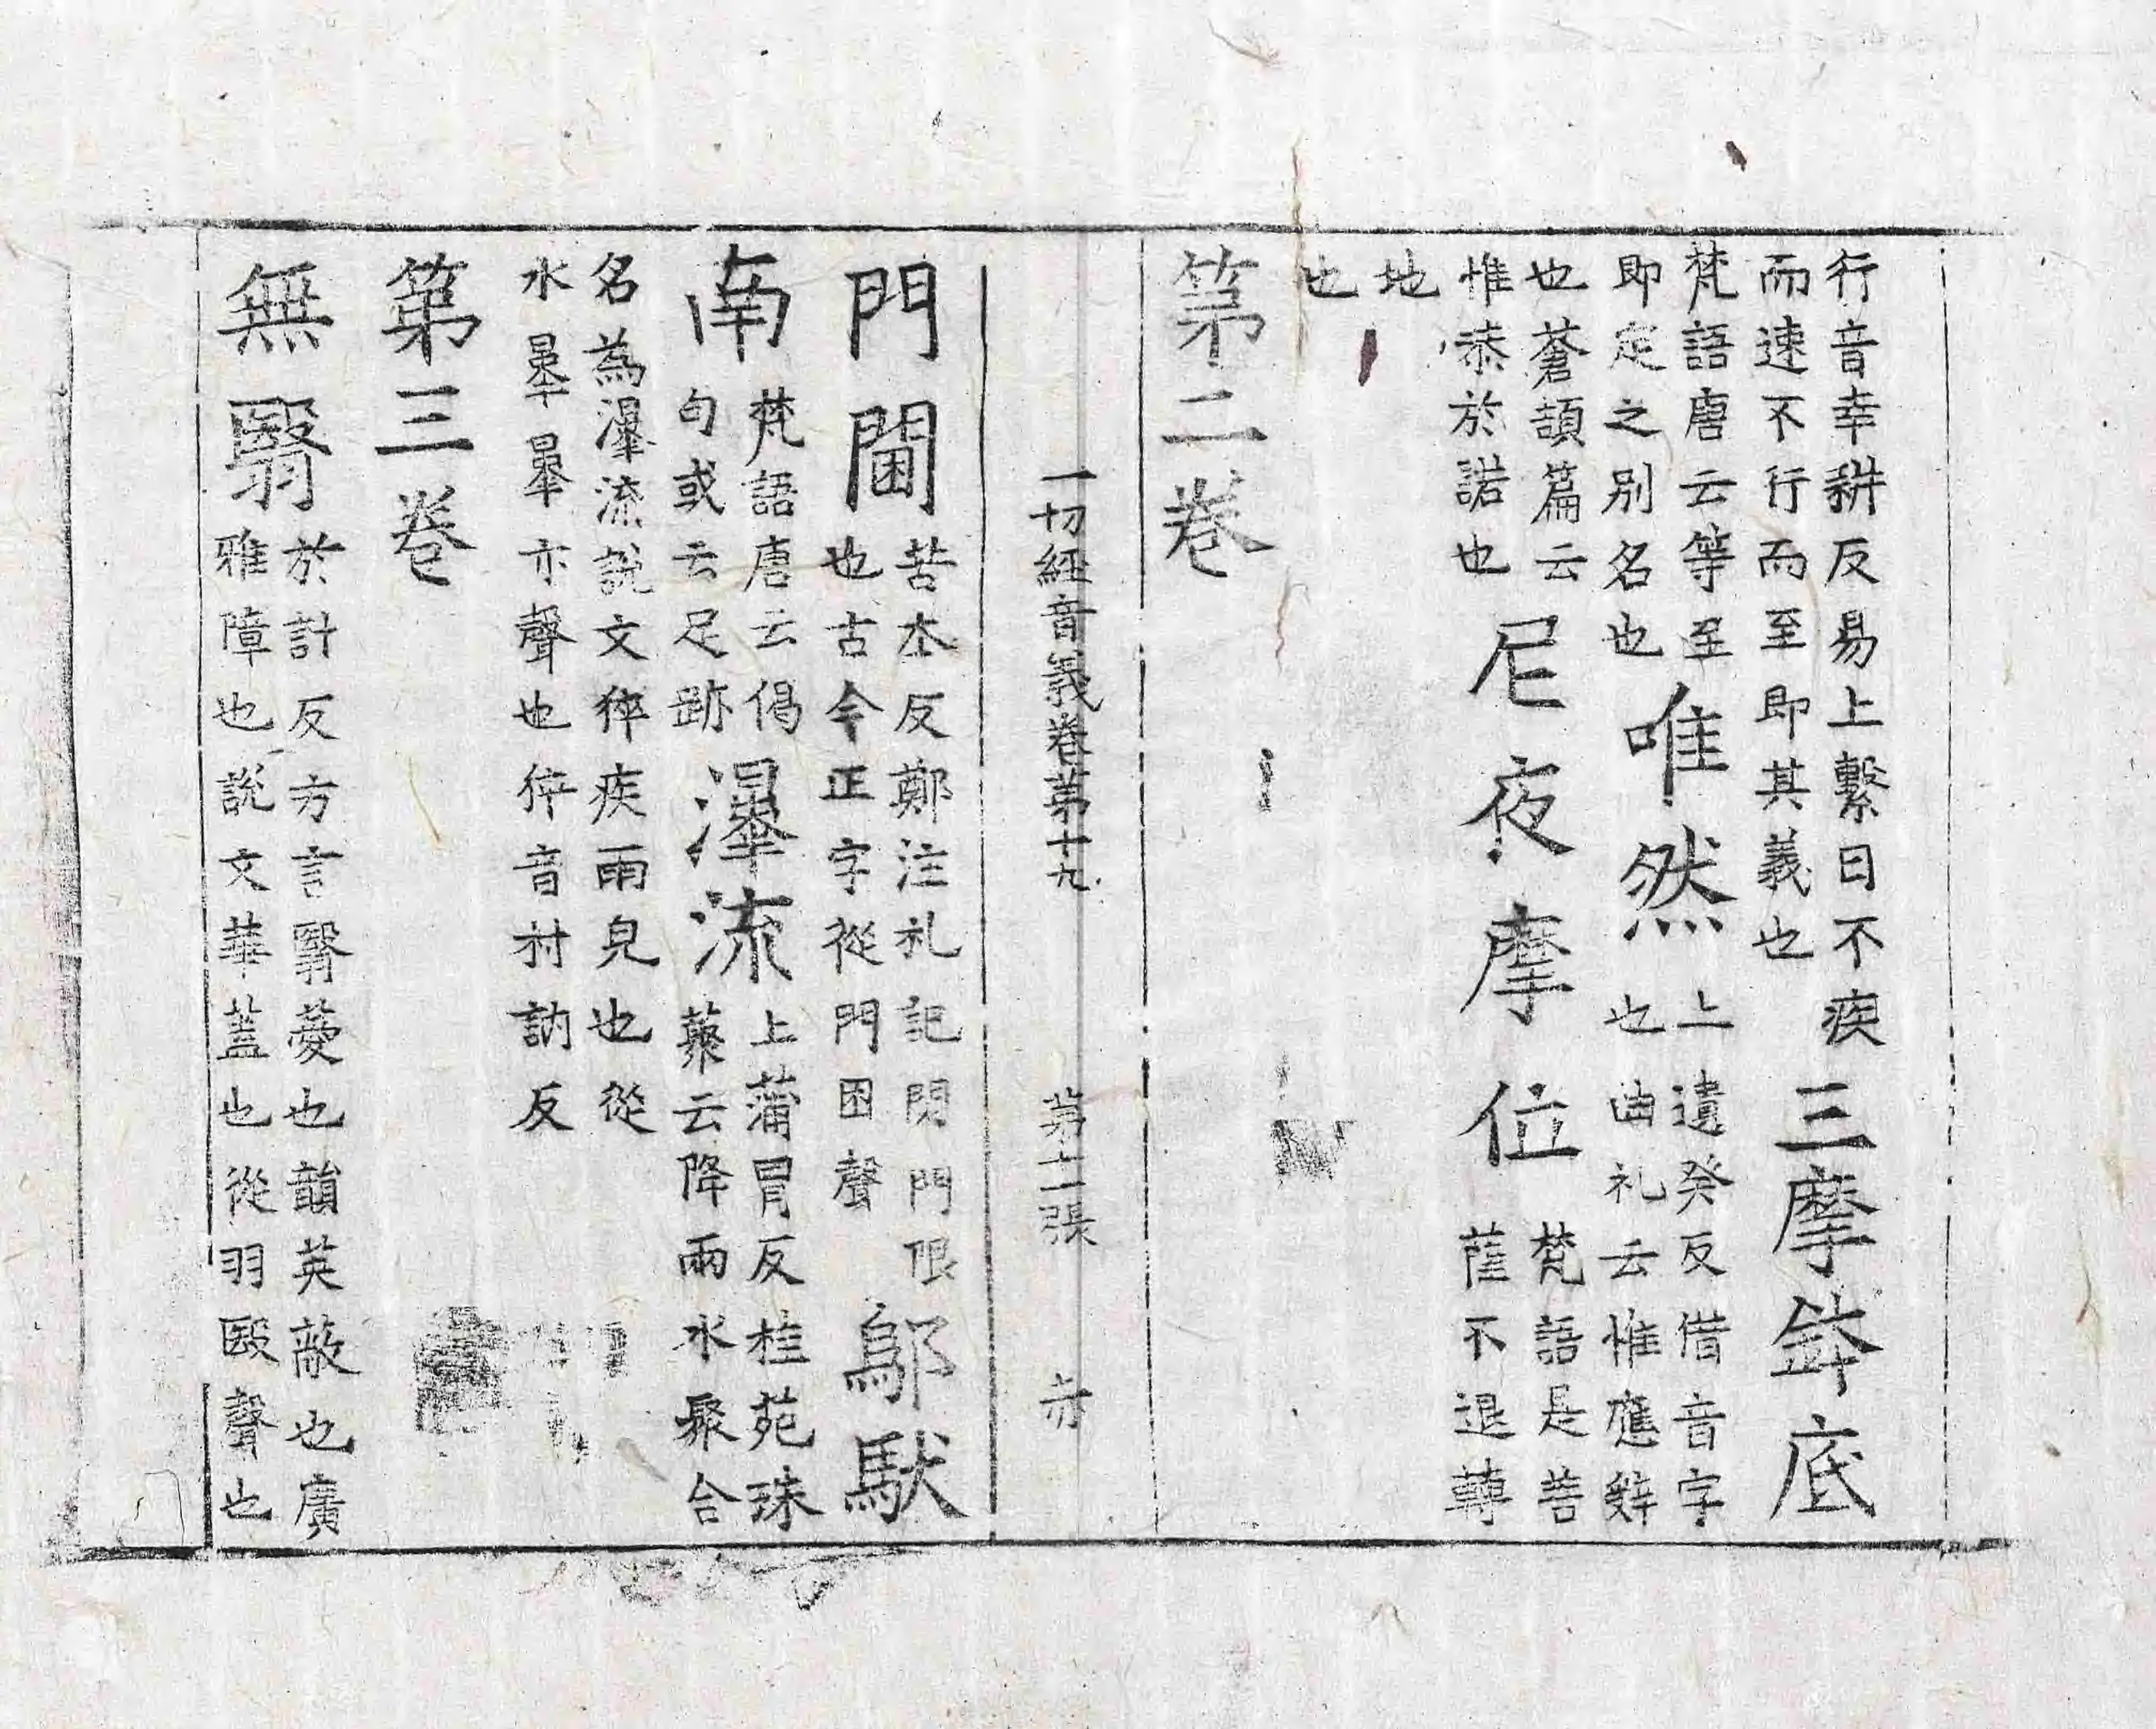 行音幸耕反易上繫曰不疾
而速不行而至即其義也
三摩鉢底
梵語唐云等至
即定之別名也
唯然
上遺癸反借音字
也曲礼云惟應辤
也蒼頡篇云
惟恭於諾也
尼夜摩位
梵語是菩
薩不退轉
地
也
第二卷
一切經音義卷第十九 第十一張 亦
門閫
苦本反鄭注礼記閫門限
也古今正字從門困聲
鄔馱
南
梵語唐云偈
句或云足跡
瀑流
上蒲冐反桂苑珠
藂云降雨水聚合
名為瀑流說文猝疾雨皃也從
水暴暴亦聲也猝音村訥反
第三卷
無翳
於計反方言翳薆也韻英蔽也廣
雅障也說文華蓋也從羽殹聲也